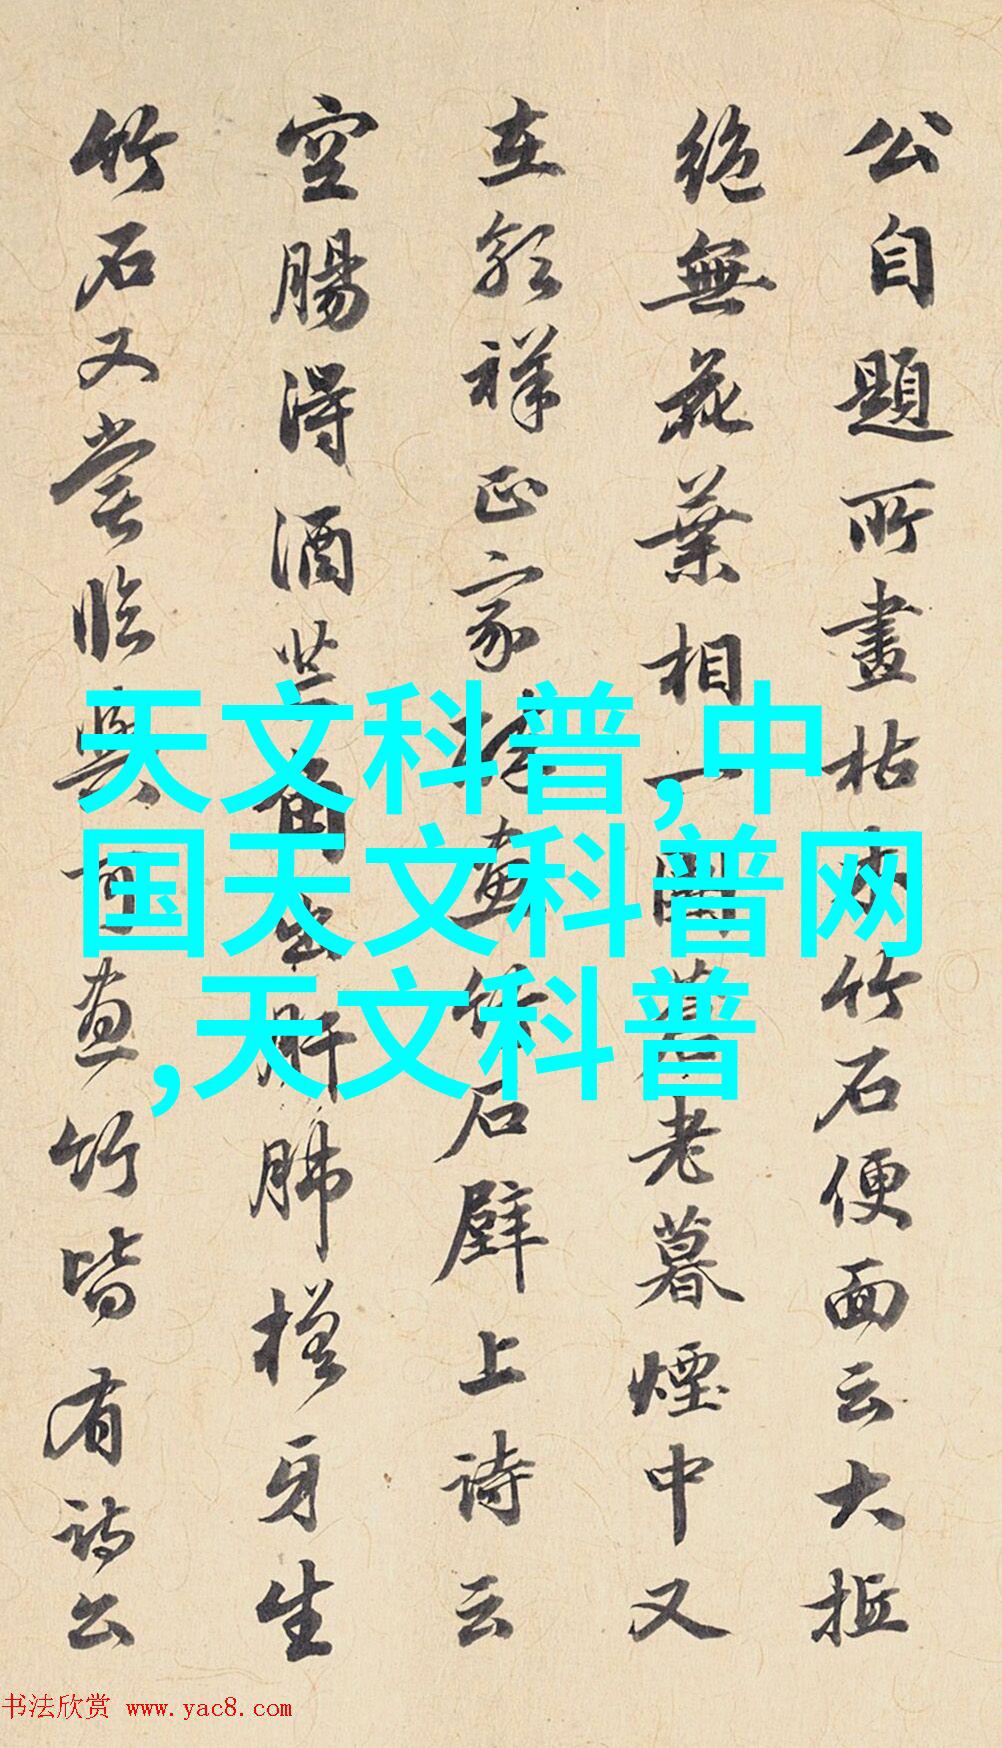 公自題所畫枯木竹石便面云大抵
絶無花葉相一閑蒼老暮煙中又
在郭祥正家
畫竹石壁上詩云
空腸得酒芒角出肝肺槎牙生
竹石又嘗臨與可畫竹皆有詩公
天文科普,中
国天文科普网
,天文科普
书法欣赏 www.yac8.com